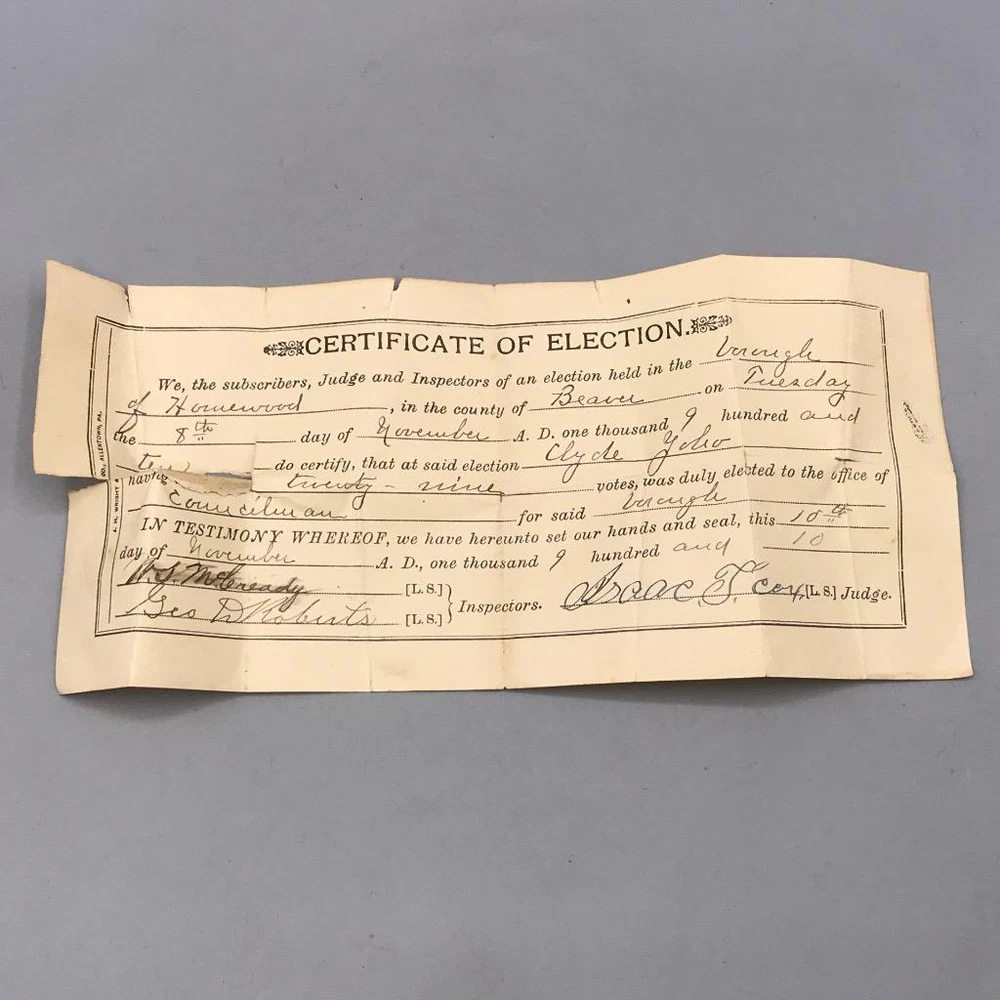 CERTIFICATE OF ELECTION.
We, the subscribers, Judge and Inspectors of an election held in the borough
of Homewood, in the county of Beaver on Tuesday
the 8th day of November A. D. one thousand 9 hundred and
ten do certify, that at said election Clyde Yoho
having twenty-nine votes, was duly elected to the office of
Councilman for said borough
IN TESTIMONY WHEREOF, we have hereunto set our hands and seal, this 10th
day of November A. D., one thousand 9 hundred and 10
W. S. McCready [L. S.]
Geo D Roberts [L. S.] } Inspectors. Isaac T. Cox [L. S.] Judge.
CO., ALLENTOWN, PA.